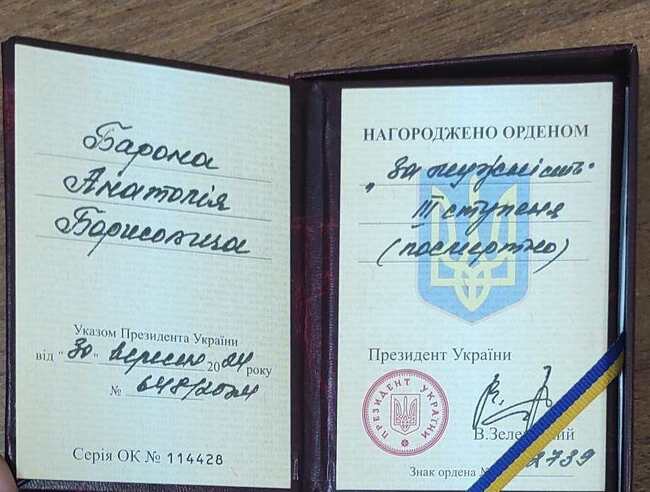 Барона
Анатолія
Борисовича
Указом Президента України
від "30" вересня 2024 року
№ 648/2024
Серія ОК № 114428
НАГОРОДЖЕНО ОРДЕНОМ
„За мужність"
III ступеня
(посмертно)
Президент України
ПРЕЗИДЕНТ УКРАЇНИ
Знак ордена 2739